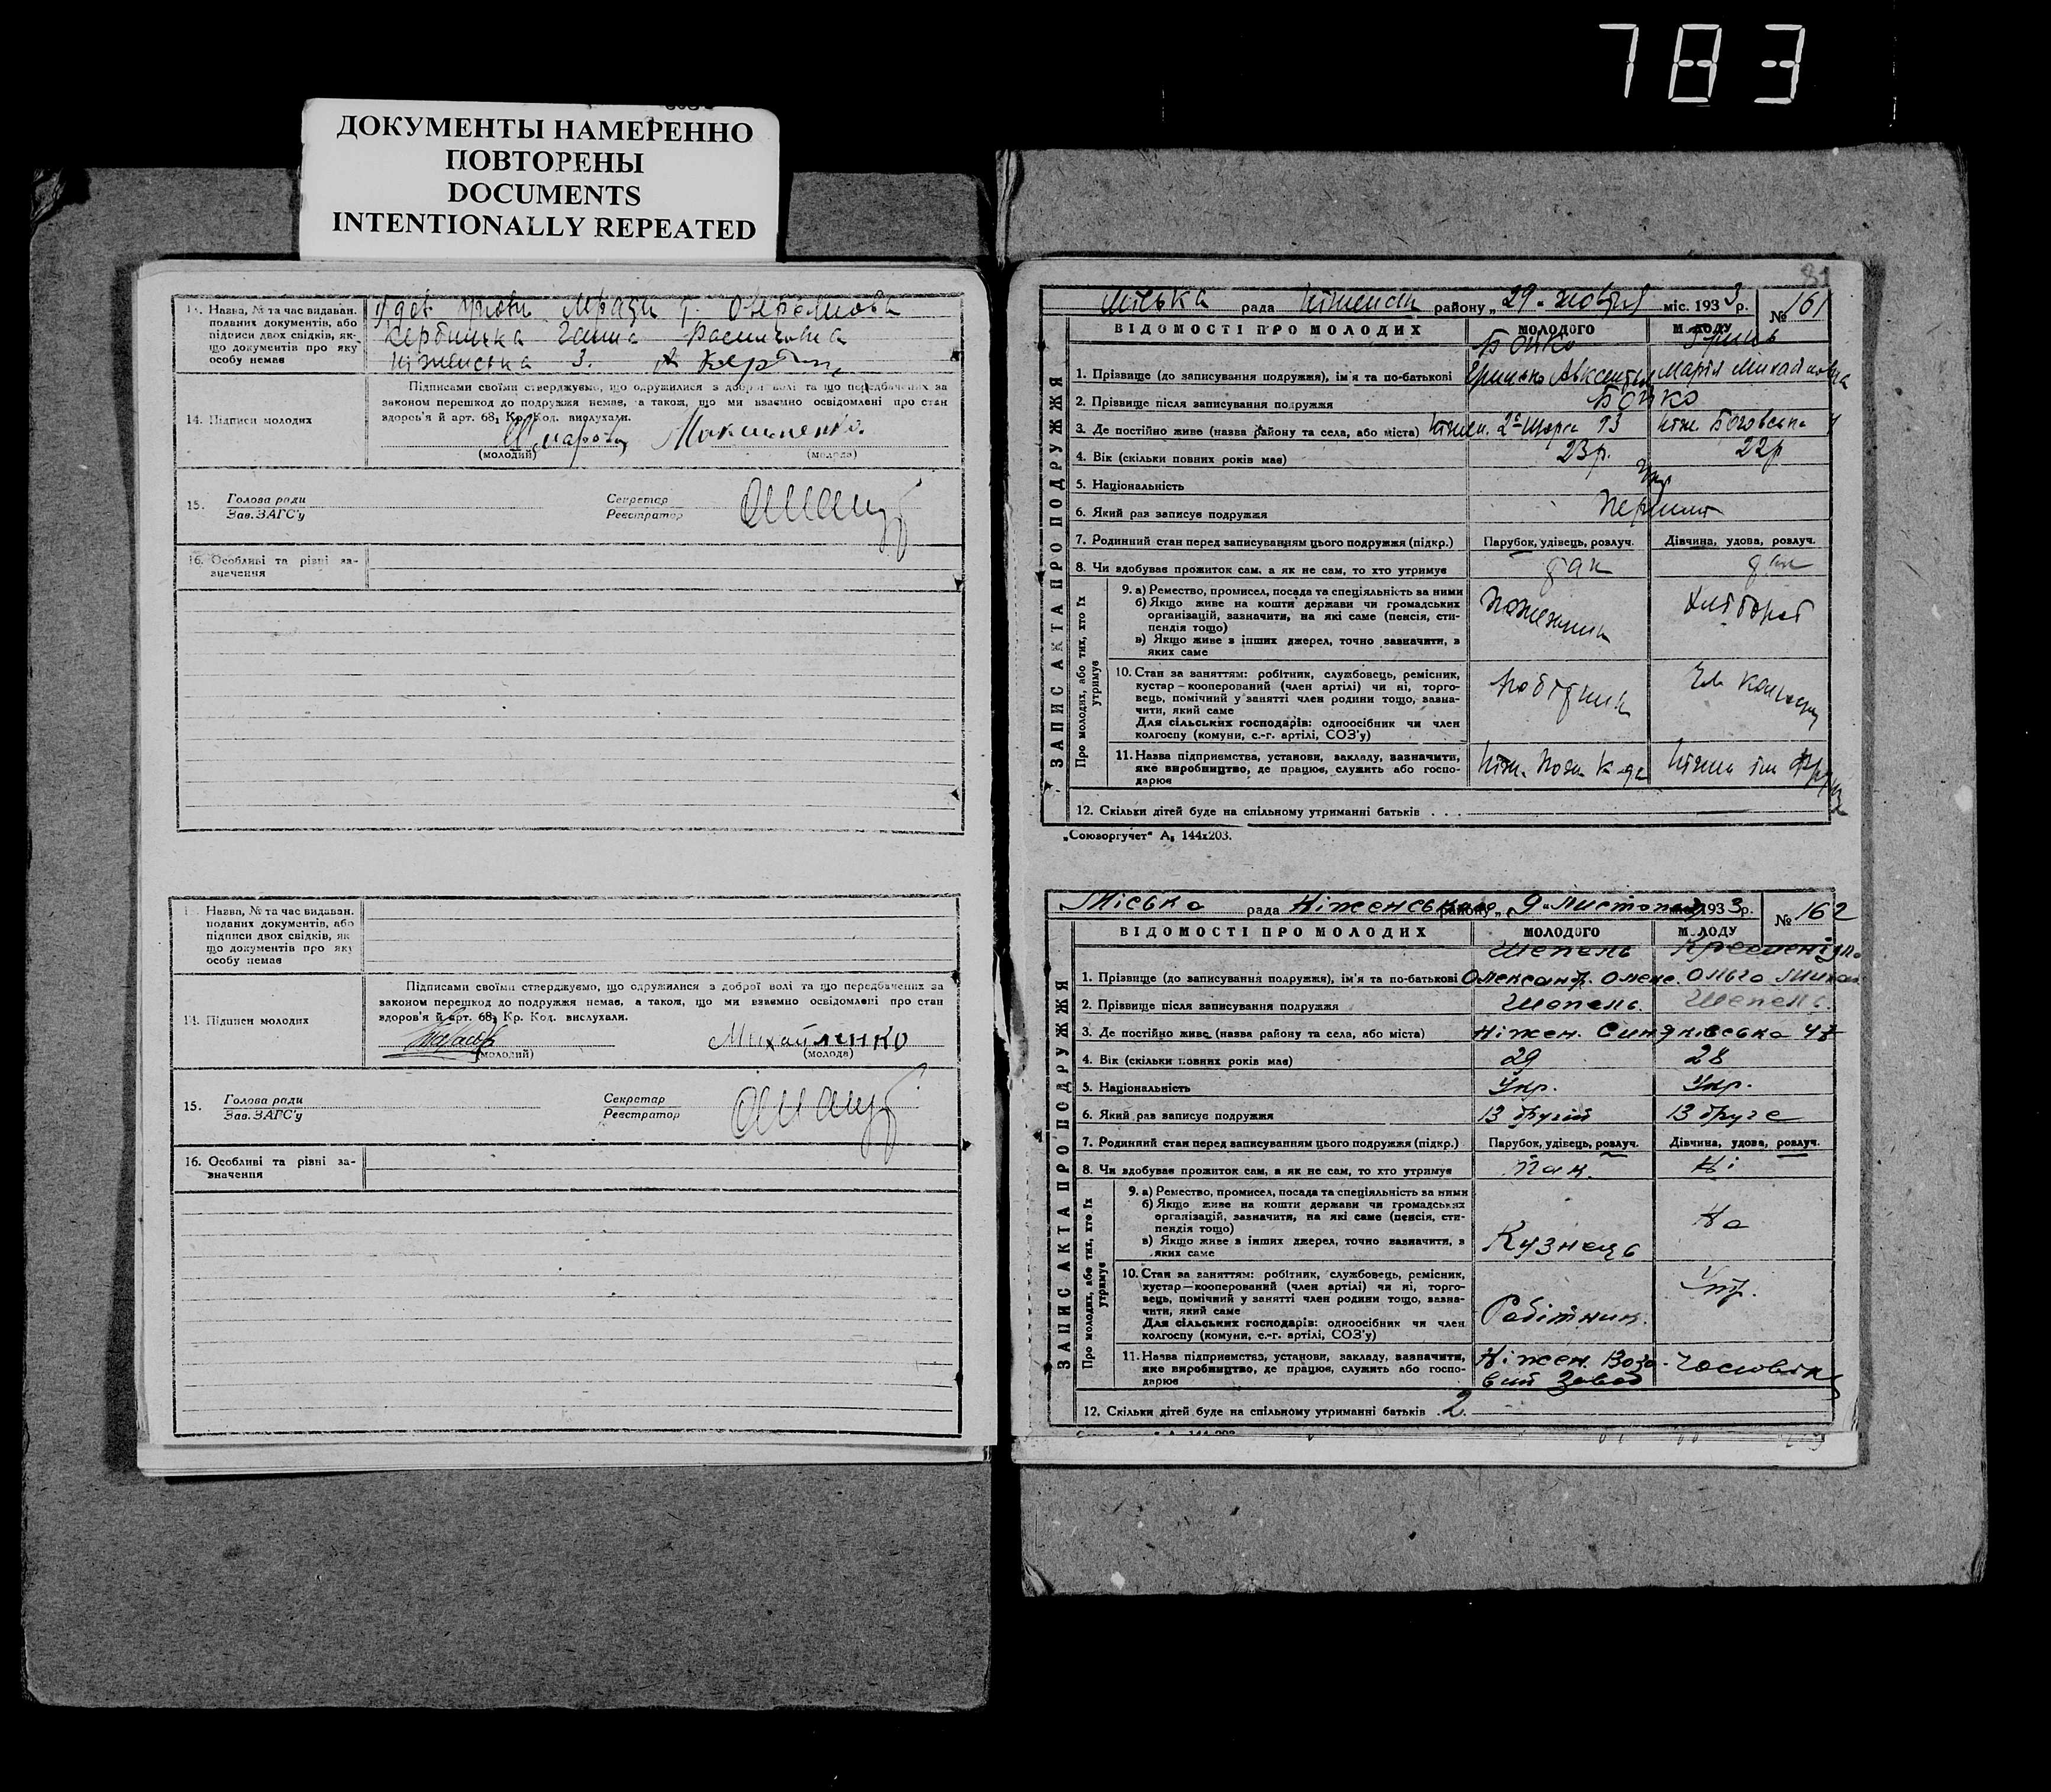 783
ДОКУМЕНТЫ НАМЕРЕННО
ПОВТОРЕНЫ
DOCUMENTS
INTENTIONALLY REPEATED
Назва, № та час видаван.
поданих документів, або
підписи двох свідків, як-
що документів про яку
особу немає
Ганна
Ніженська 3.
Підписами своїми стверджуємо, що одружилися з доброї волі та що передбачених за
законом перешкод до подружжя немає, а також, що ми взаємно освідомлені про стан
здоров'я й арт. 68, Кр. Код. вислухали.
14. Підписи молодих
(молодий) (молода)
15. Голова ради
Зав. ЗАГС'у
Секретар
Реєстратор
16. Особливі та різні за-
значення
Назва, № та час видаван.
поданих документів, або
підписи двох свідків, як
що документів про яку
особу немає
Підписами своїми стверджуємо, що одружилися з доброї волі та що передбачених за
законом перешкод до подружжя немає, а також, що ми взаємно освідомлені про стан
здоров'я й арт. 68, Кр. Код. вислухали.
14. Підписи молодих
Михайленко
(молодий) (молода)
15. Голова ради
Зав. ЗАГС'у
Секретар
Реєстратор
16. Особливі та різні за-
значення
81
Міська рада Ніженськ району „29“ жовтня міс. 1933 р. № 161
ЗАПИС АКТА ПРО ПОДРУЖЖЯ
ВІДОМОСТІ ПРО МОЛОДИХ МОЛОДОГО МОЛОДУ
Бойко
1. Прізвище (до записування подружжя), ім'я та по-батькові Марія Михайловна
2. Прізвище після записування подружжя Бойко
3. Де постійно живе (назва району та села, або міста)
4. Вік (скільки повних років має) 23р. 22р
5. Національність Укр
6. Який раз записує подружжя
7. Родинний стан перед записуванням цього подружжя (підкр.) Парубок, удівець, розлуч. Дівчина, удова, розлуч.
8. Чи здобуває прожиток сам, а як не сам, то хто утримує
Про молодих, або тих, хто їх утримує
9. а) Ремество, промисел, посада та спеціяльність за ними
б) Якщо живе на кошти держави чи громадських
організацій, зазначити, на які саме (пенсія, сти-
пендія тощо)
в) Якщо живе з інших джерел, точно зазначити, з
яких саме
Пожежник
Хлібороб
10. Стан за заняттям: робітник, службовець, ремісник,
кустар – кооперований (член артілі) чи ні, торго-
вець, помічний у занятті член родини тощо, зазна-
чити, який саме
Для сільських господарів: одноосібник чи член
колгоспу (комуни, с.-г. артілі, СОЗ'у)
11. Назва підприємства, установи, закладу, зазначити,
яке виробництво, де працює, служить або госпо-
дарює
12. Скільки дітей буде на спільному утриманні батьків . . .
„Союзоргучет“ А₅ 144х203.
Міська рада Ніженського району „9“ листопад міс. 1933р. № 162
ЗАПИС АКТА ПРО ПОДРУЖЖЯ
ВІДОМОСТІ ПРО МОЛОДИХ МОЛОДОГО МОЛОДУ
Шепель
1. Прізвище (до записування подружжя), ім'я та по-батькові Олександ. Олекс. Ольга Михай
2. Прізвище після записування подружжя Шепель. Шепель.
3. Де постійно живе (назва району та села, або міста) Ніжен. Синяківська
4. Вік (скільки повних років має) 29 28
5. Національність Укр. Укр.
6. Який раз записує подружжя
7. Родинний стан перед записуванням цього подружжя (підкр.) Парубок, удівець, розлуч. Дівчина, удова, розлуч.
8. Чи здобуває прожиток сам, а як не сам, то хто утримує Так. Ні
Про молодих, або тих, хто їх утримує
9. а) Ремество, промисел, посада та спеціяльність за ними
б) Якщо живе на кошти держави чи громадських
організацій, зазначити, на які саме (пенсія, сти-
пендія тощо)
в) Якщо живе з інших джерел, точно зазначити, з
яких саме
Кузнець
На
10. Стан за заняттям: робітник, службовець, ремісник,
кустар—кооперований (член артілі) чи ні, торго-
вець, помічний у занятті член родини тощо, зазна-
чити, який саме
Для сільських господарів: одноосібник чи член
колгоспу (комуни, с.-г. артілі, СОЗ'у)
Робітник.
Утр.
11. Назва підприємства, установи, закладу, зазначити,
яке виробництво, де працює, служить або госпо-
дарює
Ніжен. Возо-
вий Завод
12. Скільки дітей буде на спільному утриманні батьків 2.